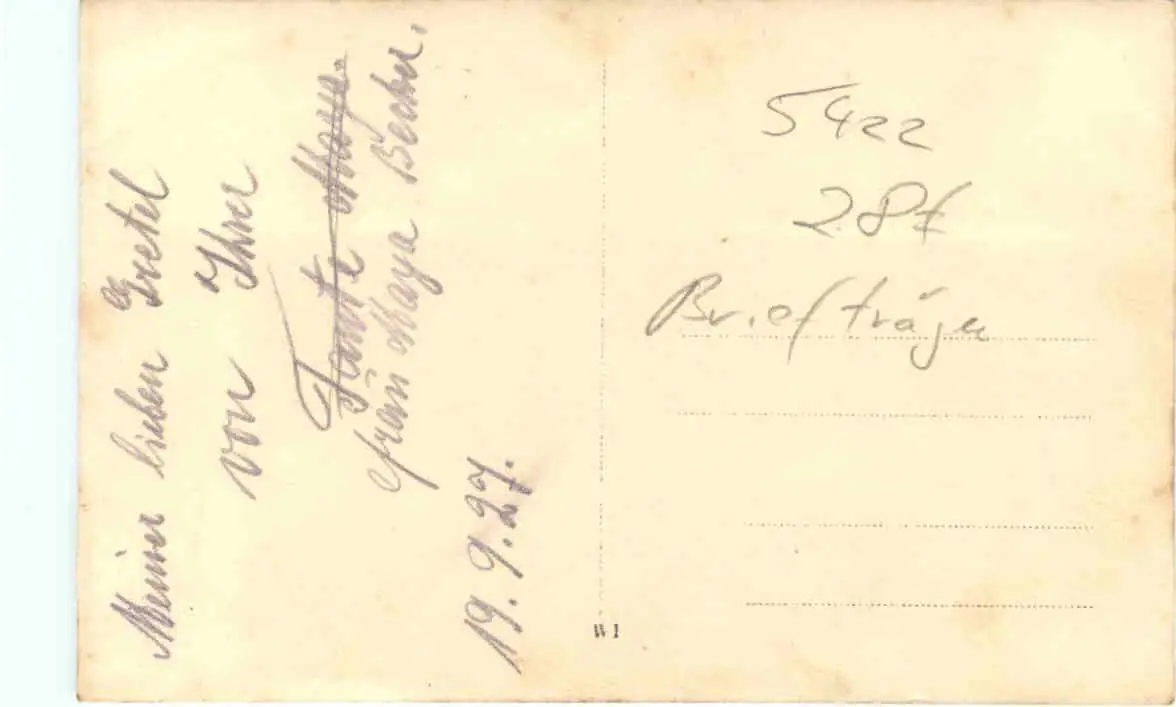 Meiner lieben Gretel
von Ihrer
Tante Maya.
Frau Maya Becker.
19.9.27.
5422
28€
Briefträger
W I